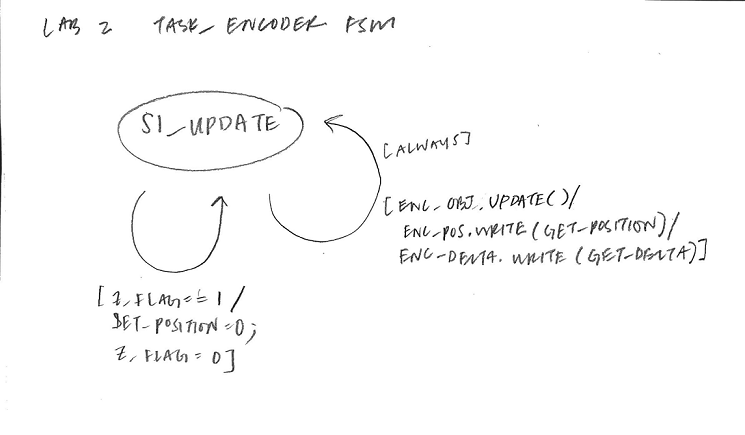 LAB 2 TASK_ENCODER FSM
S1_UPDATE
[ALWAYS]
[ENC_OBJ.UPDATE()/
ENC_POS.WRITE(GET_POSITION)/
ENC_DELTA.WRITE(GET_DELTA)]
[Z_FLAG==1/
SET_POSITION=0;
Z_FLAG=0]